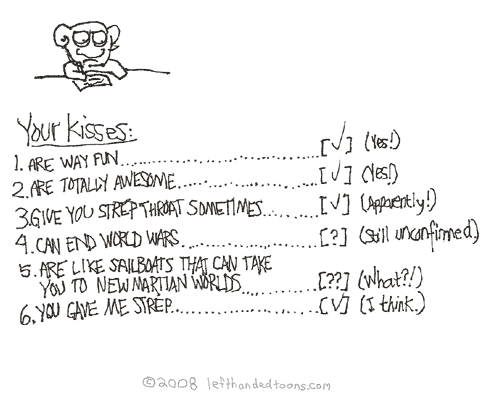 Your Kisses:
1. ARE WAY FUN................................[✓] (Yes!)
2. ARE TOTALLY AWESOME....................[✓] (Yes!)
3. GIVE YOU STREP THROAT SOMETIMES........[✓] (Apparently!)
4. CAN END WORLD WARS....................[?] (Still unconfirmed)
5. ARE LIKE SAILBOATS THAT CAN TAKE
YOU TO NEW MARTIAN WORLDS.............[??] (What?!)
6. YOU GAVE ME STREP.....................[✓] (I think.)
©2008 lefthandedtoons.com